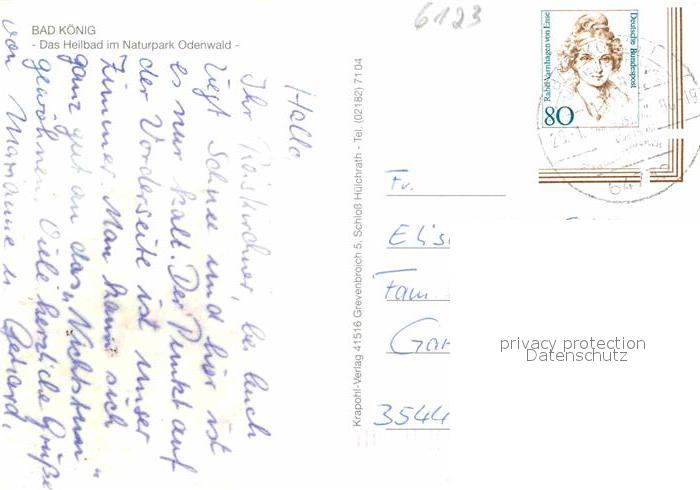 6123
BAD KÖNIG
- Das Heilbad im Naturpark Odenwald -
Hallo
Ihr Reiskirchner, bei Euch
liegt Schnee und hier ist
es nur kalt. Der Punkt auf
der Vorderseite ist unser
Zimmer. Man kann sich
ganz gut an das "Nichtstun"
gewöhnen. Viele herzliche Grüße
von Marianne u. Gerhard.
Krapohl-Verlag 41516 Grevenbroich 5, Schloß Hülchrath - Tel. (02182) 71 04
Rahel Varnhagen von Ense
Deutsche Bundespost
80
Fr.
Elis
Fam.
Gar
3544
privacy protection
Datenschutz